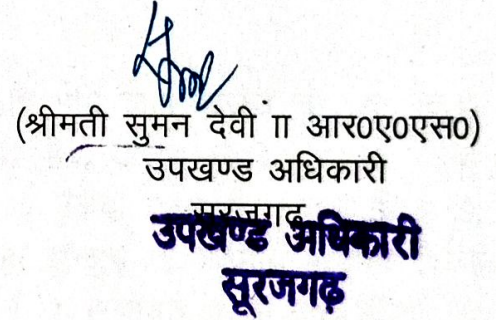 (श्रीमती सुमन देवी II आर0ए0एस0)
उपखण्ड अधिकारी
सूरजगढ़
उपखण्ड अधिकारी
सूरजगढ़